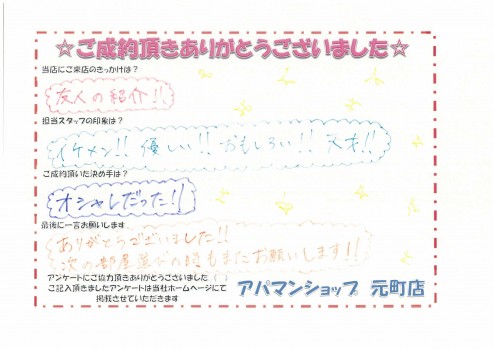 ☆ご成約頂きありがとうございました☆
当店にご来店のきっかけは？
友人の紹介!!
担当スタッフの印象は？
イケメン!! 優しい!! おもしろい!! 天才!!
ご成約頂いた決め手は？
オシャレだった!!
最後に一言お願いします
ありがとうございました!!
次の部屋選びの時もまたお願いします!!
アンケートにご協力頂きありがとうございました
ご記入頂きましたアンケートは当社ホームページにて
掲載させていただきます
アパマンショップ 元町店